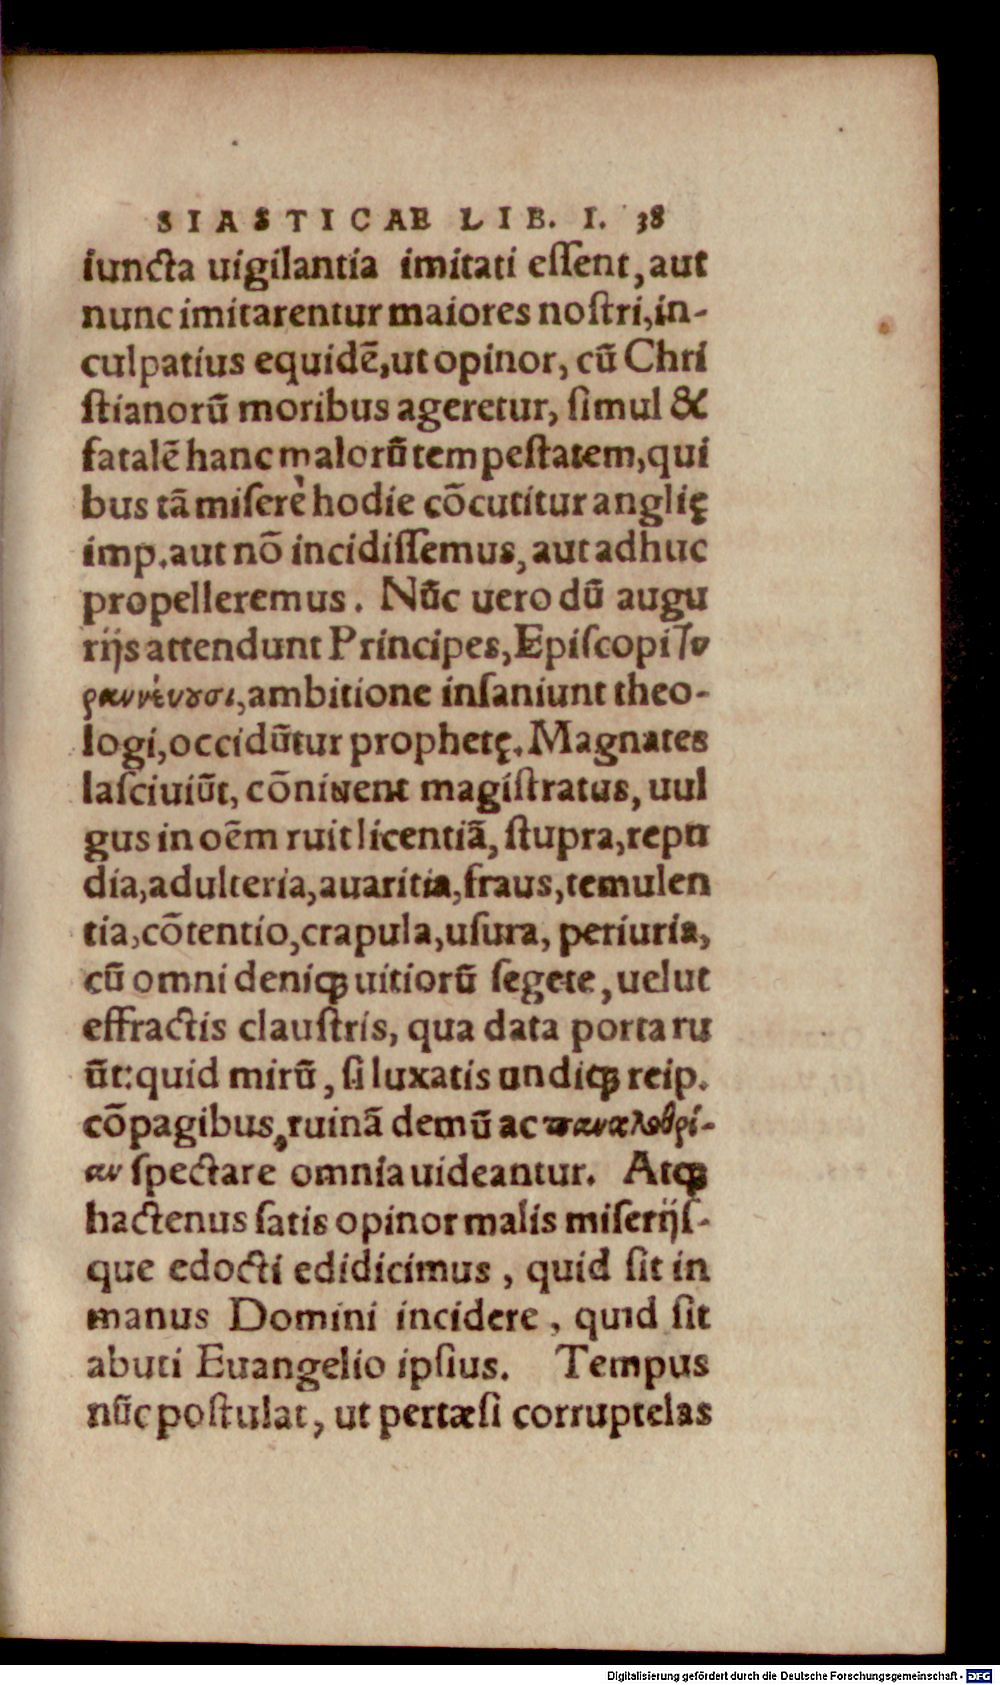 SIASTICAE LIB. I. 38
iuncta uigilantia imitati eſſent, aut
nunc imitarentur maiores noſtri, in-
culpatius equidē, ut opinor, cū Chri
ſtianorū moribus ageretur, ſimul &
fatalē hanc malorū tempeſtatem, qui
bus tā miſerè hodie cōcutitur anglię
imp. aut nō incidiſſemus, aut adhuc
propelleremus. Nūc uero dū augu
rijs attendunt Principes, Epiſcopi τυ
ραννέυουσι, ambitione inſaniunt theo-
logi, occidūtur prophetę. Magnates
laſciuiūt, cōniuent magiſtratus, uul
gus in oēm ruit licentiā, ſtupra, repu
dia, adulteria, auaritia, fraus, temulen
tia, cōtentio, crapula, uſura, periuria,
cū omni deniqꝫ uitiorū ſegete, uelut
effractis clauſtris, qua data porta ru
ūt: quid mirū, ſi luxatis undiqꝫ reip.
cōpagibus, ruinā demū ac παναλεθρί-
αν ſpectare omnia uideantur. Atqꝫ
hactenus ſatis opinor malis miſerijſ-
que edocti edidicimus, quid ſit in
manus Domini incidere, quid ſit
abuti Euangelio ipſius. Tempus
nūc poſtulat, ut pertæſi corruptelas
Digitalisierung gefördert durch die Deutsche Forschungsgemeinschaft - DFG